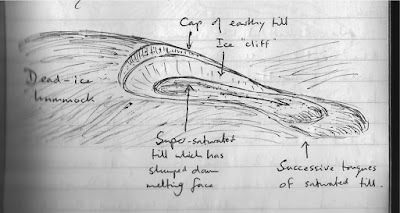 Cap of earthy till
Ice "cliff"
Dead-ice
hummock
Super-saturated
till which has
slumped down
melting face
Successive tongues
of saturated till.